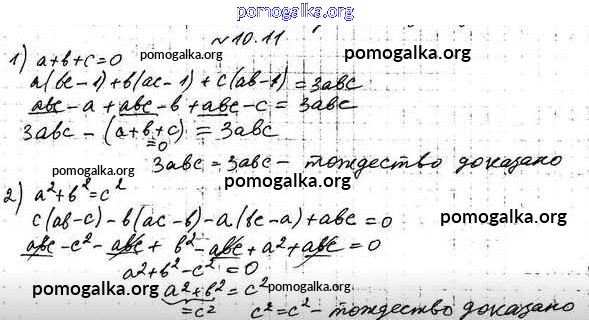 pomogalka.org
№10.11
1) a+b+c=0 pomogalka.org pomogalka.org
a(bc-1)+b(ac-1)+c(ab-1)=3abc
abc-a+abc-b+abc-c=3abc
3abc-(a+b+c)=3abc pomogalka.org
=0
3abc=3abc - тождество доказано
pomogalka.org pomogalka.org
2) a²+b²=c²
c(ab-c)-b(ac-b)-a(bc-a)+abc=0 pomogalka.org
abc-c²-abc+b²-abc+a²+abc=0
a²+b²-c²=0
pomogalka.org a²+b²=c² pomogalka.org
=c² c²=c² - тождество доказано
pomogalka.org